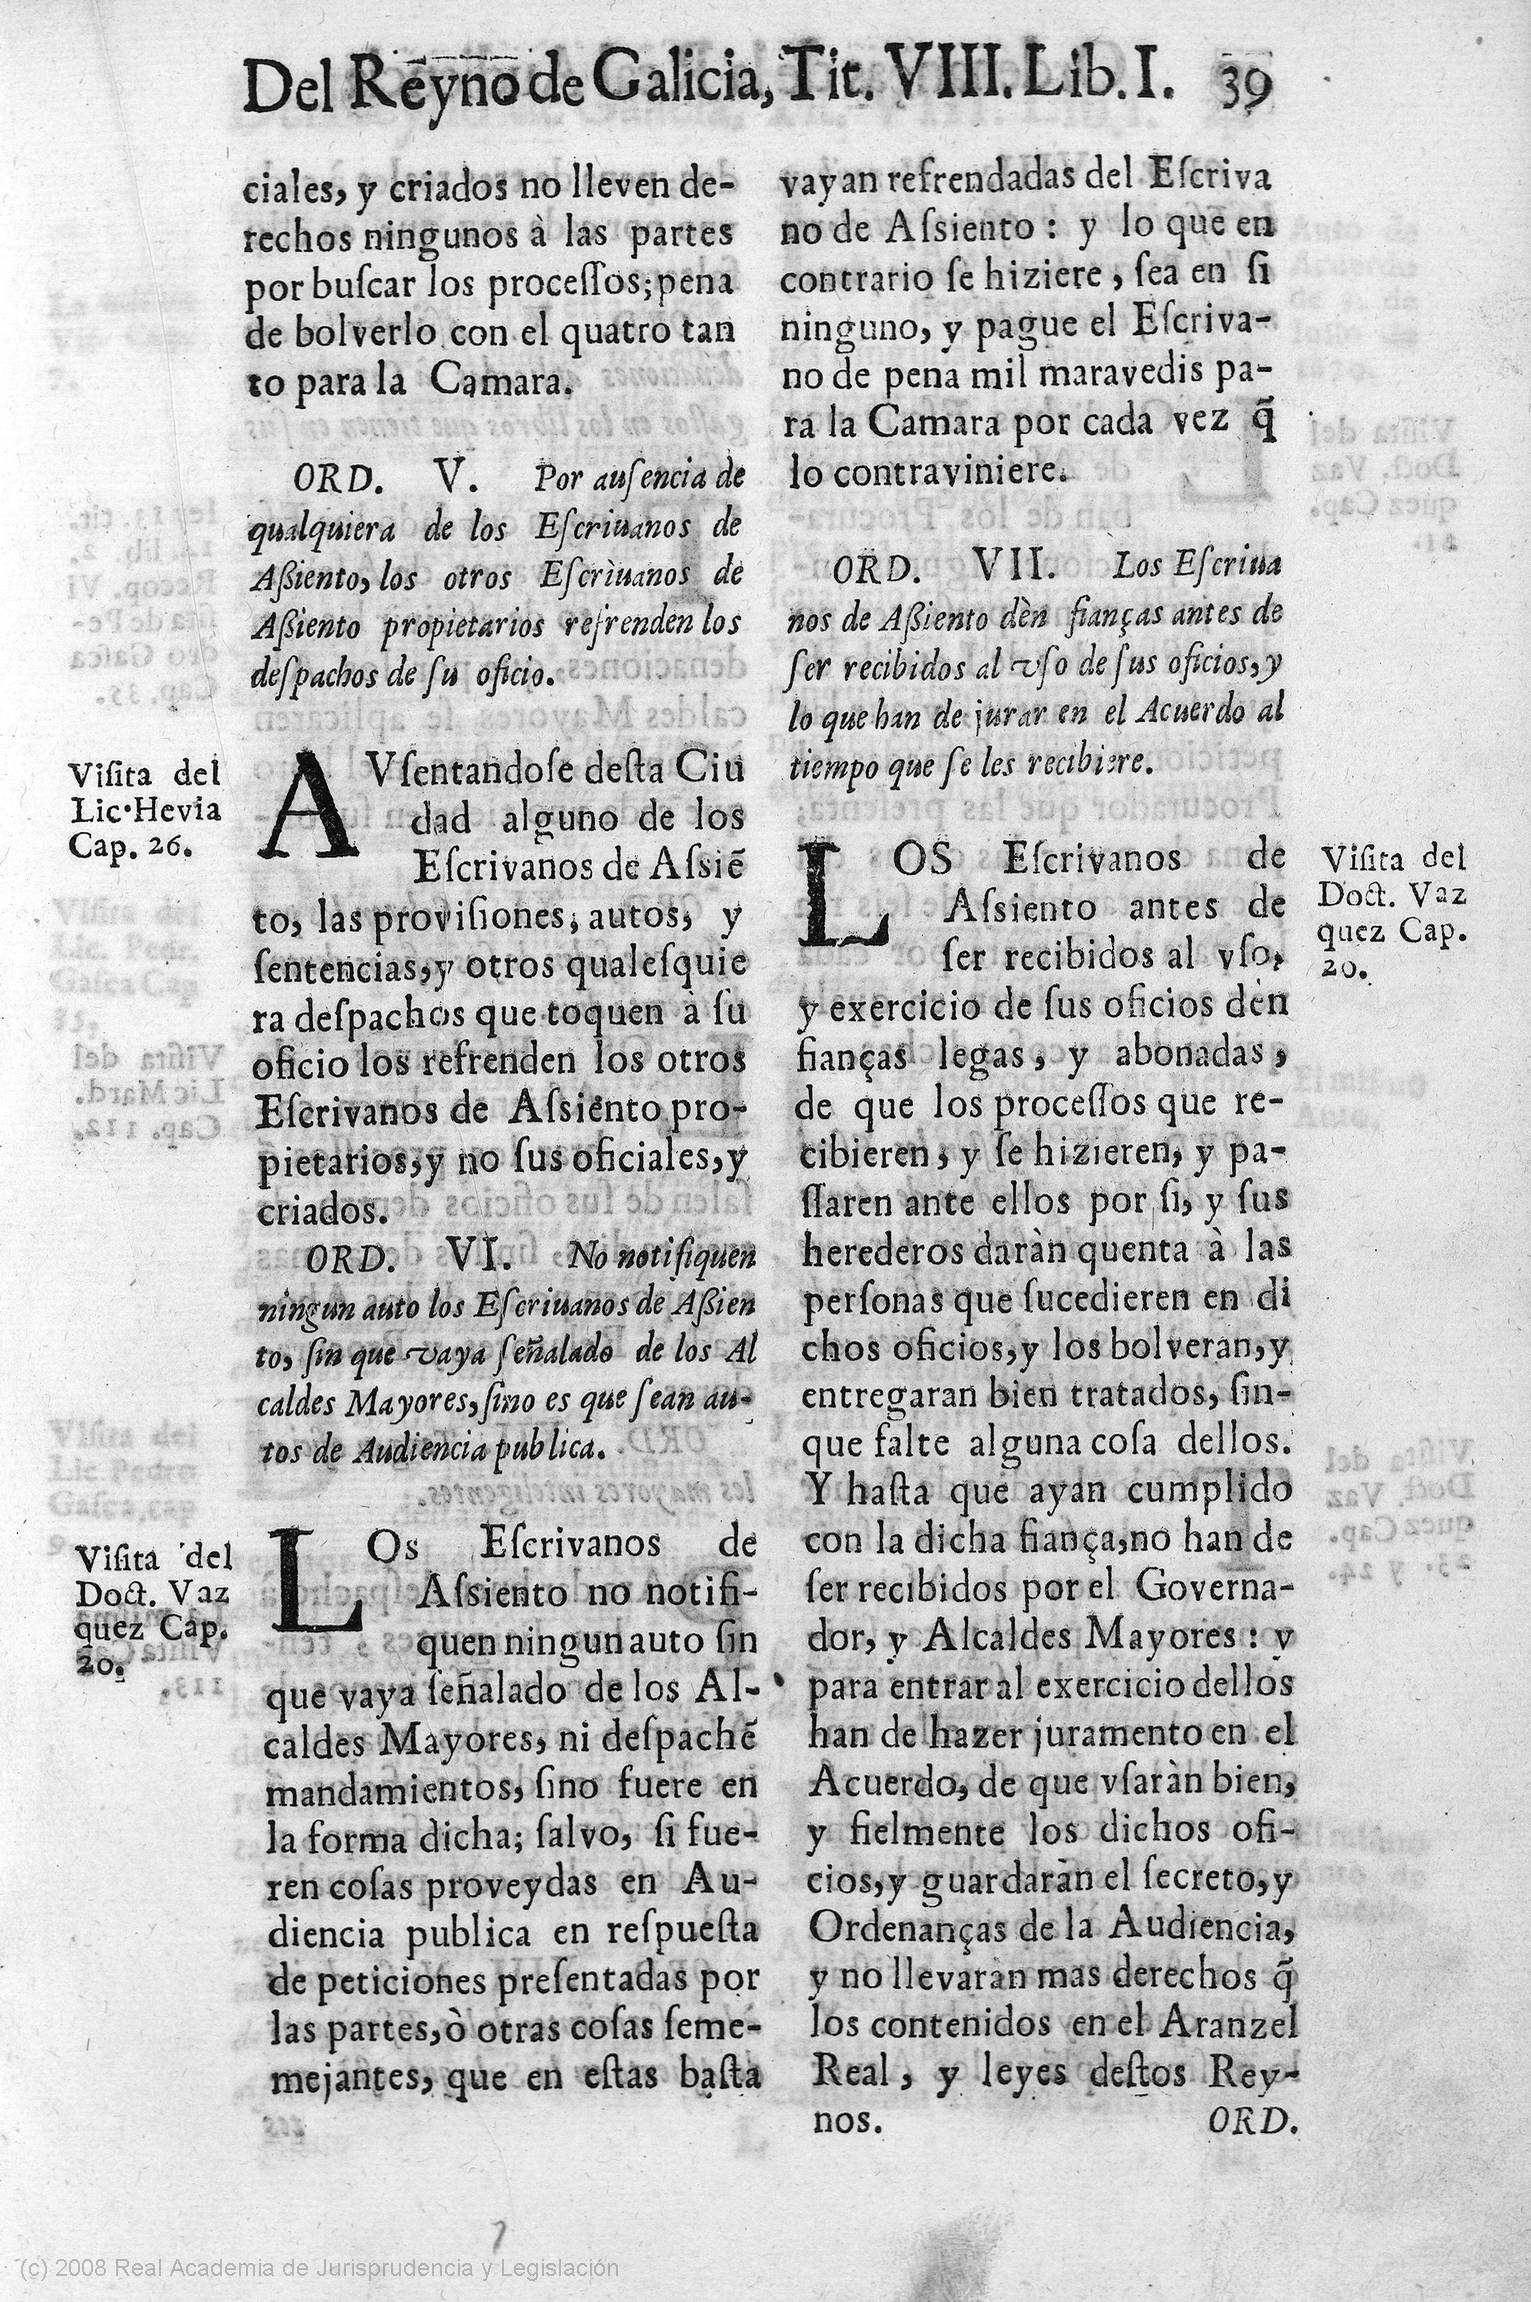 Del Reyno de Galicia, Tit. VIII. Lib. I. 39
ciales, y criados no lleven de-
rechos ningunos à las partes
por buſcar los proceſſos; pena
de bolverlo con el quatro tan
to para la Camara.
ORD. V. Por auſencia de
qualquiera de los Eſcriuanos de
Aßiento, los otros Eſcriuanos de
Aßiento propietarios refrenden los
deſpachos de ſu oficio.
Viſita del
Lic. Hevia
Cap. 26.
AVſentandoſe deſta Ciu
dad alguno de los
Eſcrivanos de Aſsiẽ
to, las proviſiones, autos, y
ſentencias, y otros qualeſquie
ra deſpachos que toquen à ſu
oficio los refrenden los otros
Eſcrivanos de Aſsiento pro-
pietarios, y no ſus oficiales, y
criados.
ORD. VI. No notifiquen
ningun auto los Eſcriuanos de Aßien
to, ſin que vaya ſeñalado de los Al
caldes Mayores, ſino es que ſean au-
tos de Audiencia publica.
Viſita del
Doct. Vaz
quez Cap.
20.
LOs Eſcrivanos de
Aſsiento no notifi-
quen ningun auto ſin
que vaya ſeñalado de los Al-
caldes Mayores, ni deſpachẽ
mandamientos, ſino fuere en
la forma dicha; ſalvo, ſi fue-
ren coſas proveydas en Au-
diencia publica en reſpueſta
de peticiones preſentadas por
las partes, ò otras coſas ſeme-
mejantes, que en eſtas baſta
vayan refrendadas del Eſcriva
no de Aſsiento : y lo que en
contrario ſe hiziere, ſea en ſi
ninguno, y pague el Eſcriva-
no de pena mil maravedis pa-
ra la Camara por cada vez q̃
lo contraviniere.
ORD. VII. Los Eſcriua
nos de Aßiento dèn fianças antes de
ſer recibidos al vſo de ſus oficios, y
lo que han de jurar en el Acuerdo al
tiempo que ſe les recibiere.
LOS Eſcrivanos de
Aſsiento antes de
ſer recibidos al vſo,
y exercicio de ſus oficios dèn
fianças legas, y abonadas,
de que los proceſſos que re-
cibieren, y ſe hizieren, y pa-
ſſaren ante ellos por ſi, y ſus
herederos daràn quenta à las
perſonas que ſucedieren en di
chos oficios, y los bolveran, y
entregaran bien tratados, ſin-
que falte alguna coſa dellos.
Y haſta que ayan cumplido
con la dicha fiança, no han de
ſer recibidos por el Governa-
dor, y Alcaldes Mayores : y
para entrar al exercicio dellos
han de hazer juramento en el
Acuerdo, de que vſaràn bien,
y fielmente los dichos ofi-
cios, y guardaràn el ſecreto, y
Ordenanças de la Audiencia,
y no llevaràn mas derechos q̃
los contenidos en el Aranzel
Real, y leyes deſtos Rey-
nos.
ORD.
Viſita del
Doct. Vaz
quez Cap.
20.
(c) 2008 Real Academia de Jurisprudencia y Legislación